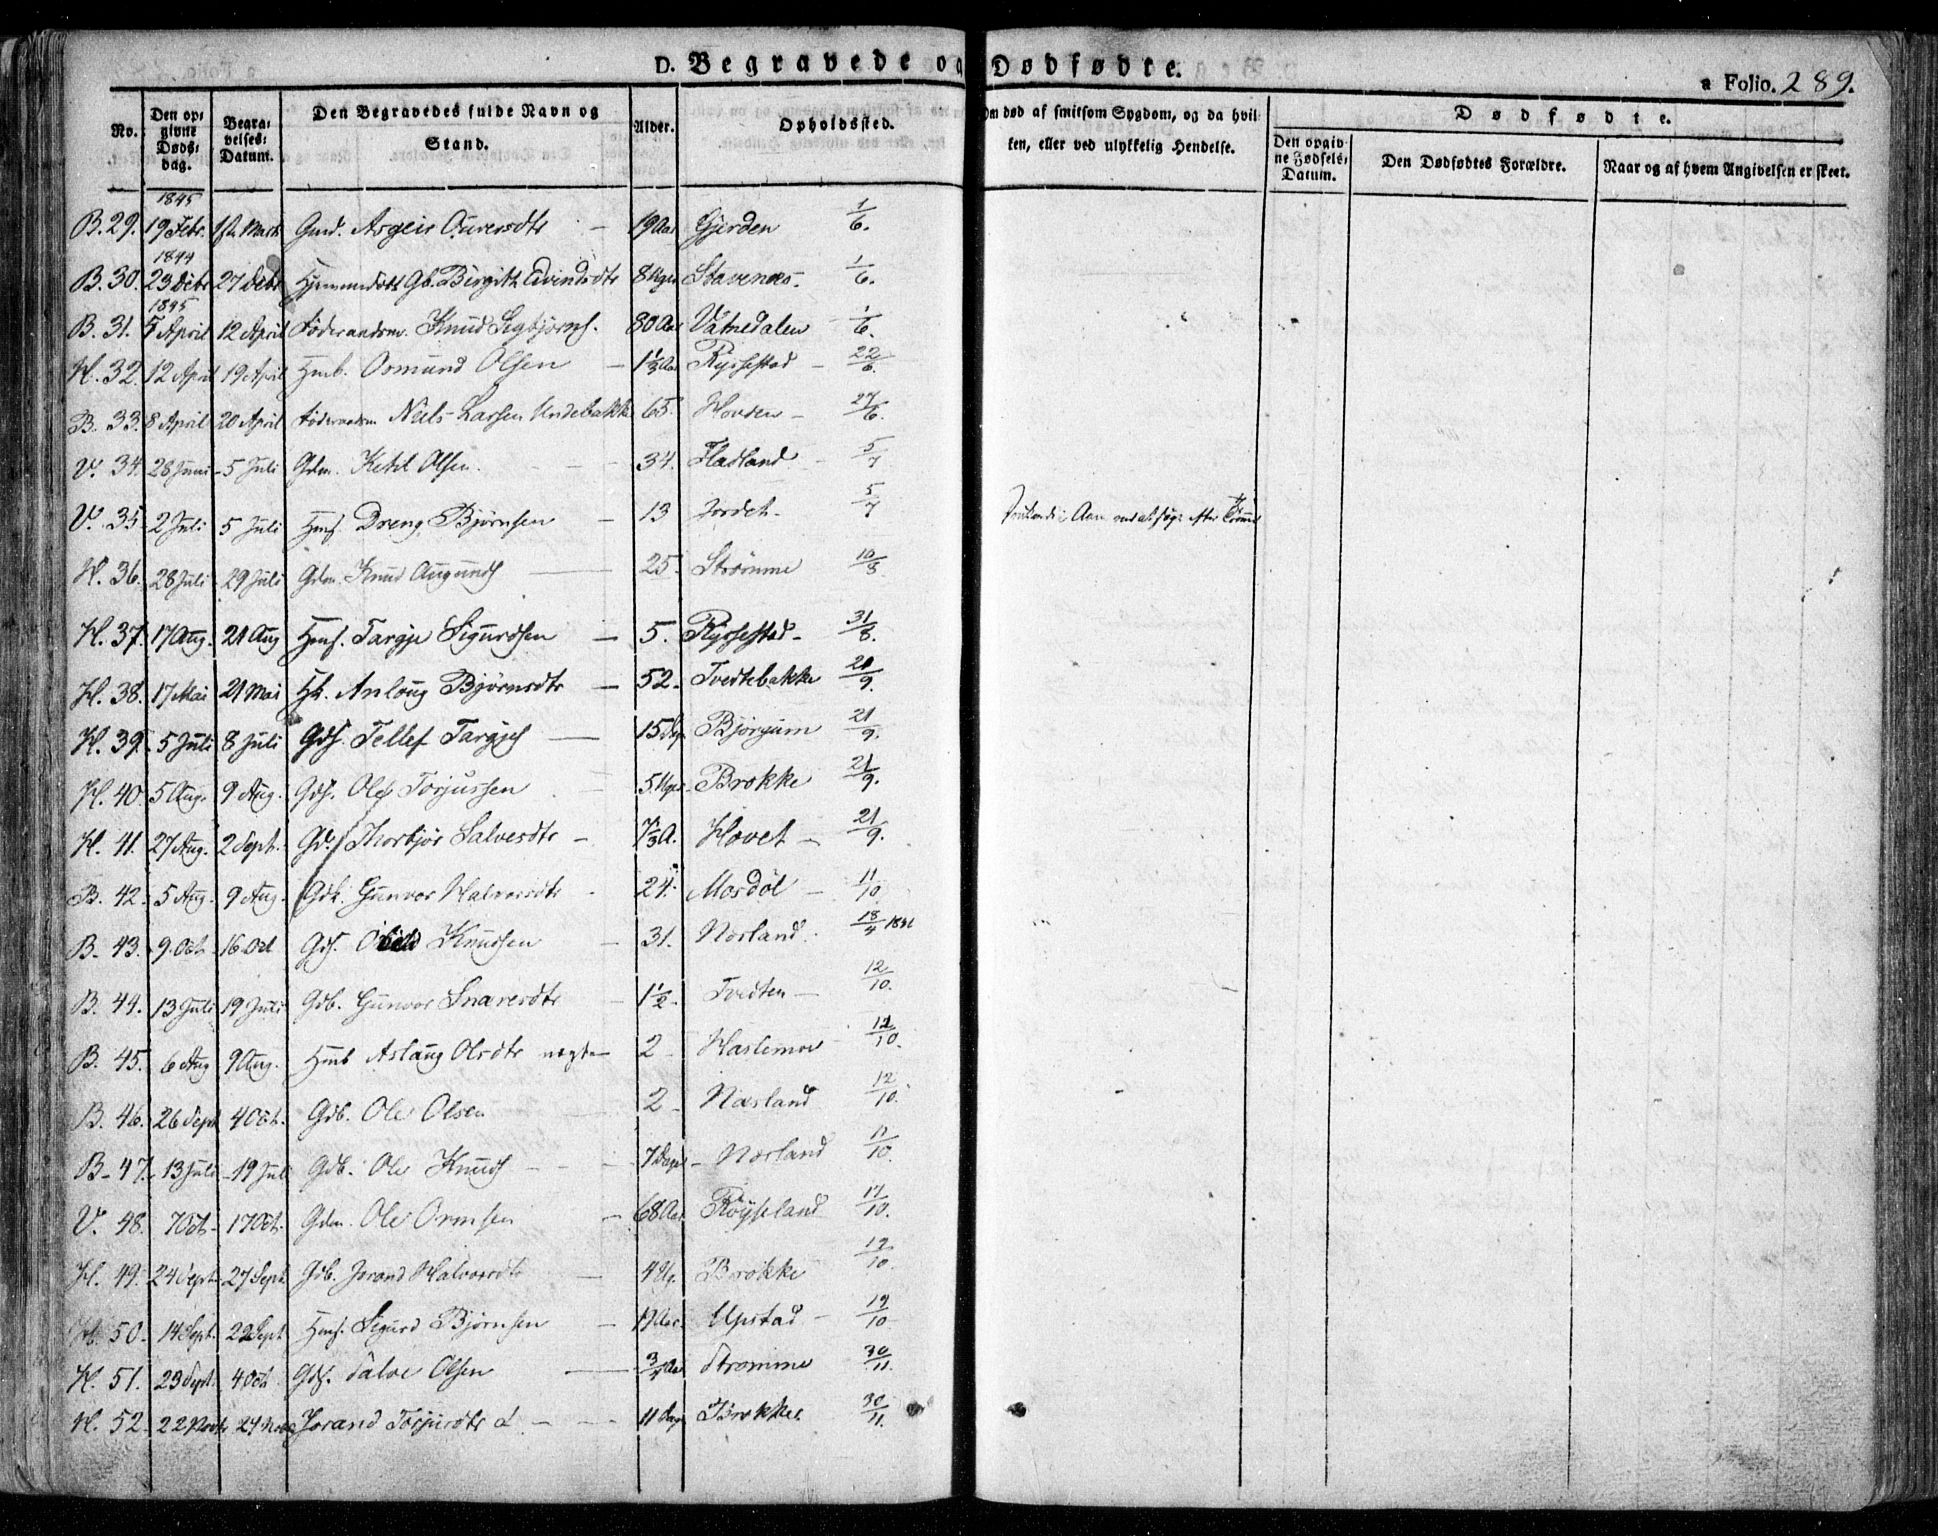 D. Begravede og Dødfødte.
a Folio. 289.
No. Den opgivne Døds-dag. Begravelses-Datum. Den Begravedes fulde Navn og Stand. Alder. Opholdssted. Om død af smitsom Sygdom, og da hvilken, eller ved ulykkelig Hendelse. Dødfødte. Den opgivne Fødsels-Datum. Den Dødfødtes Forældre. Naar og af hvem Angivelsen er skeet.
1845
B. 29. 19 Febr. Mart. Gmd. Asgeir 19 Aar Gjerden 1/6.
1844
B. 30. 23 Debr 27 Debr Gb. Birgith Eivindsdtr 8 Uger Stavenæs. 1/6.
1845
B. 31. 5 April 12 April Føderaadsm. Knud Sigbjørns. 80 Aar Vatnedalen 1/6.
H. 32. 12 April 19 April Hmb. Osmund Olsen 1 1/3 Aar Rysfestad 22/6.
B. 33. 8 April 20 April Føderaadsm Niels Larsen Undebakke 65. Hovden 27/6.
V. 34. 28 Juni 5 Juli Gdm. Ketil Olsen. 34. Fladland 5/7
V. 35 2 Juli 5 Juli Hms. Dreng Bjørnsen 13 Jordet 5/7 Aaen ved at søge efter Tømmer
H. 36. 28 Juli 29 Juli Gdm. Knud Augunds 25. Strømme 10/8
H. 37. 17 Aug. 21 Aug Hms. Targje Sigurdsen 5. Rysfestad 31/8.
H. 38. 17 Mai 21 Mai Hk. Anloug Bjørnsdtr 52. Tvedtebakke 21/9.
H. 39. 5 Juli 8 Juli Gds. Tellef Targjes 15 Dag Bjørgum 21/9.
H. 40. 5 Aug. 9 Aug. Gds. Ole Torjussen 5 Uger Brokke 21/9.
H. 41. 27 Aug. 2 Sept. Gd. Thorbjør Salvesdtr 7 1/3 A. Hovet 21/9.
B. 42. 5 Aug. 9 Aug. Gdk. Gunvor Halvorsdtr 24. Mosdøl 11/10
B. 43. 9. Oct. 16 Oct Gds. Knudsen 31. Næsland. 18/4
B. 44. 13 Juli 19 Juli Gdb. Gunvor Snaresdtr 1 1/2 Tvedten 12/10.
B. 45. 6 Aug 9 Aug. Hmb Aslaug Olsdtr 2 Haslemoe 12/10.
B. 46. 26 Sept 4 Oct. Gdb. Ole Olsen 2 Næsland 12/10.
B. 47. 13 Juli 19 Juli Gdb. Ole Knuds 7 Dage Næsland 11/10.
V. 48. 7 Oct. 17 Oct. Gdm. Ole Ormsen 68 Aar Røysland 17/10.
H. 49. 24 Sept 27 Sept. Gdb. Jorand Halvorsdtr 4 Ug. Brokke 19/10.
H. 50. 14 Sept. 22 Sept Hms. Sigurd Bjørnsen Upstad 19/10
H. 51. 23 Sept. 4 Oct. Gds. Salve Olsen 3/4 Aar Strømme 30/11.
H. 52. 22 Novbr 24 Novbr Jorand Torjusdtr 11 Dage Brokke. 30/11.